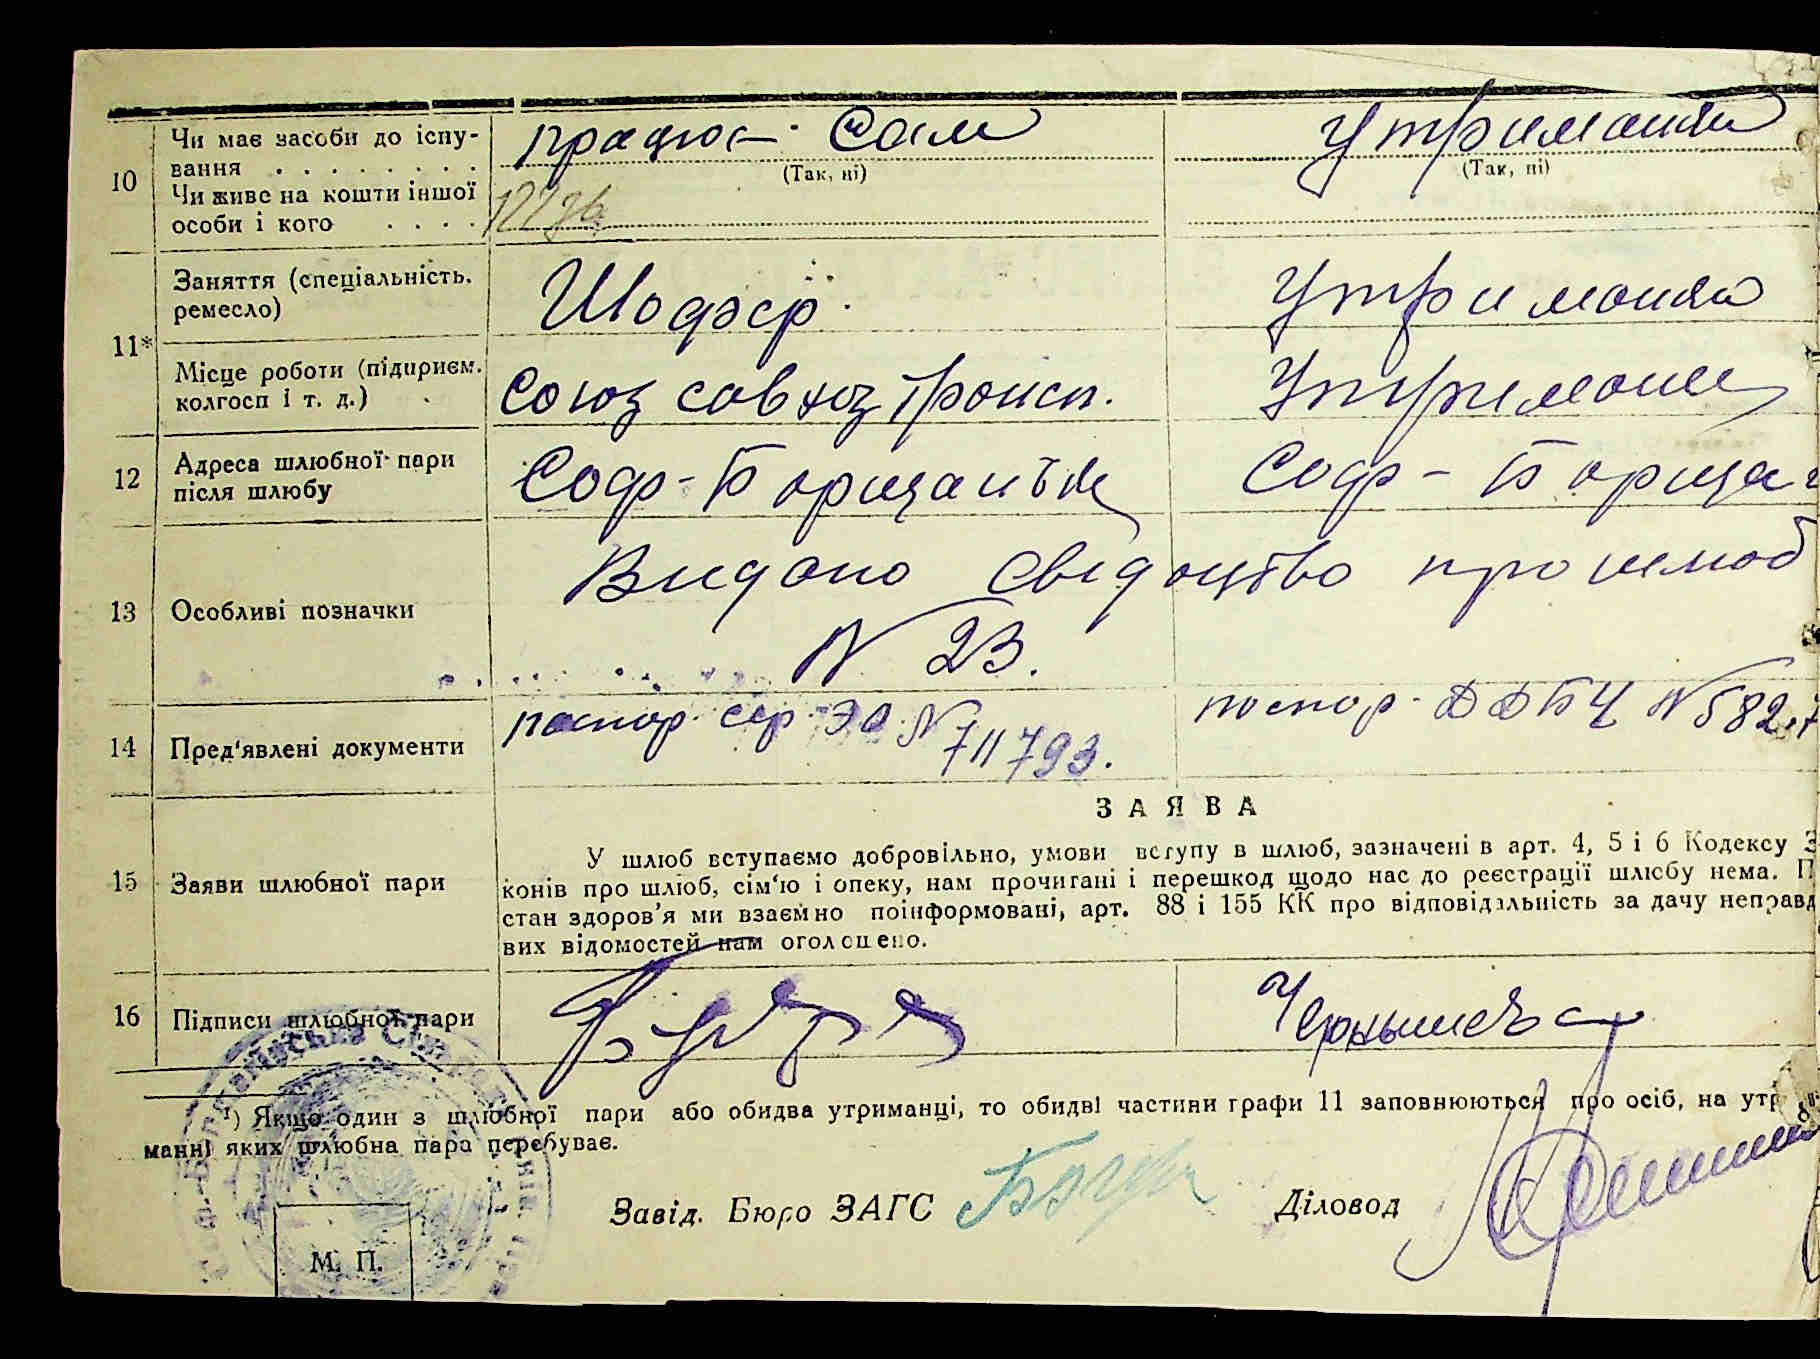 10 Чи має засоби до існу-
вання . . . . . . . . працює Сам Утриманка
(Так, ні) (Так, ні)
Чи живе на кошти іншої
особи і кого . . . .
11* Заняття (спеціальність, ремесло) Шофэр. Утриманка
Місце роботи (підприєм.
колгосп і т. д.) Союз совхоз трансп. Утриманка
12 Адреса шлюбної пари
після шлюбу Соф-Борщагівка Соф-Борщаг
13 Особливі позначки Видано свідоцтво про шлюб
N 23.
14 Пред'явлені документи паспор. сер. ЭО N 711793. паспор. N 582
ЗАЯВА
15 Заяви шлюбної пари
У шлюб вступаємо добровільно, умови вступу в шлюб, зазначені в арт. 4, 5 і 6 Кодексу З
конів про шлюб, сім'ю і опеку, нам прочитані і перешкод щодо нас до реєстрації шлюбу нема. П
стан здоров'я ми взаємно поінформовані, арт. 88 і 155 КК про відповідальність за дачу неправд
вих відомостей нам оголошено.
16 Підписи шлюбної пари Чернышева
¹) Якщо один з шлюбної пари або обидва утриманці, то обидві частини графи 11 заповнюються про осіб, на утр
манні яких шлюбна пара перебуває.
Завід. Бюро ЗАГС Діловод
М. П.